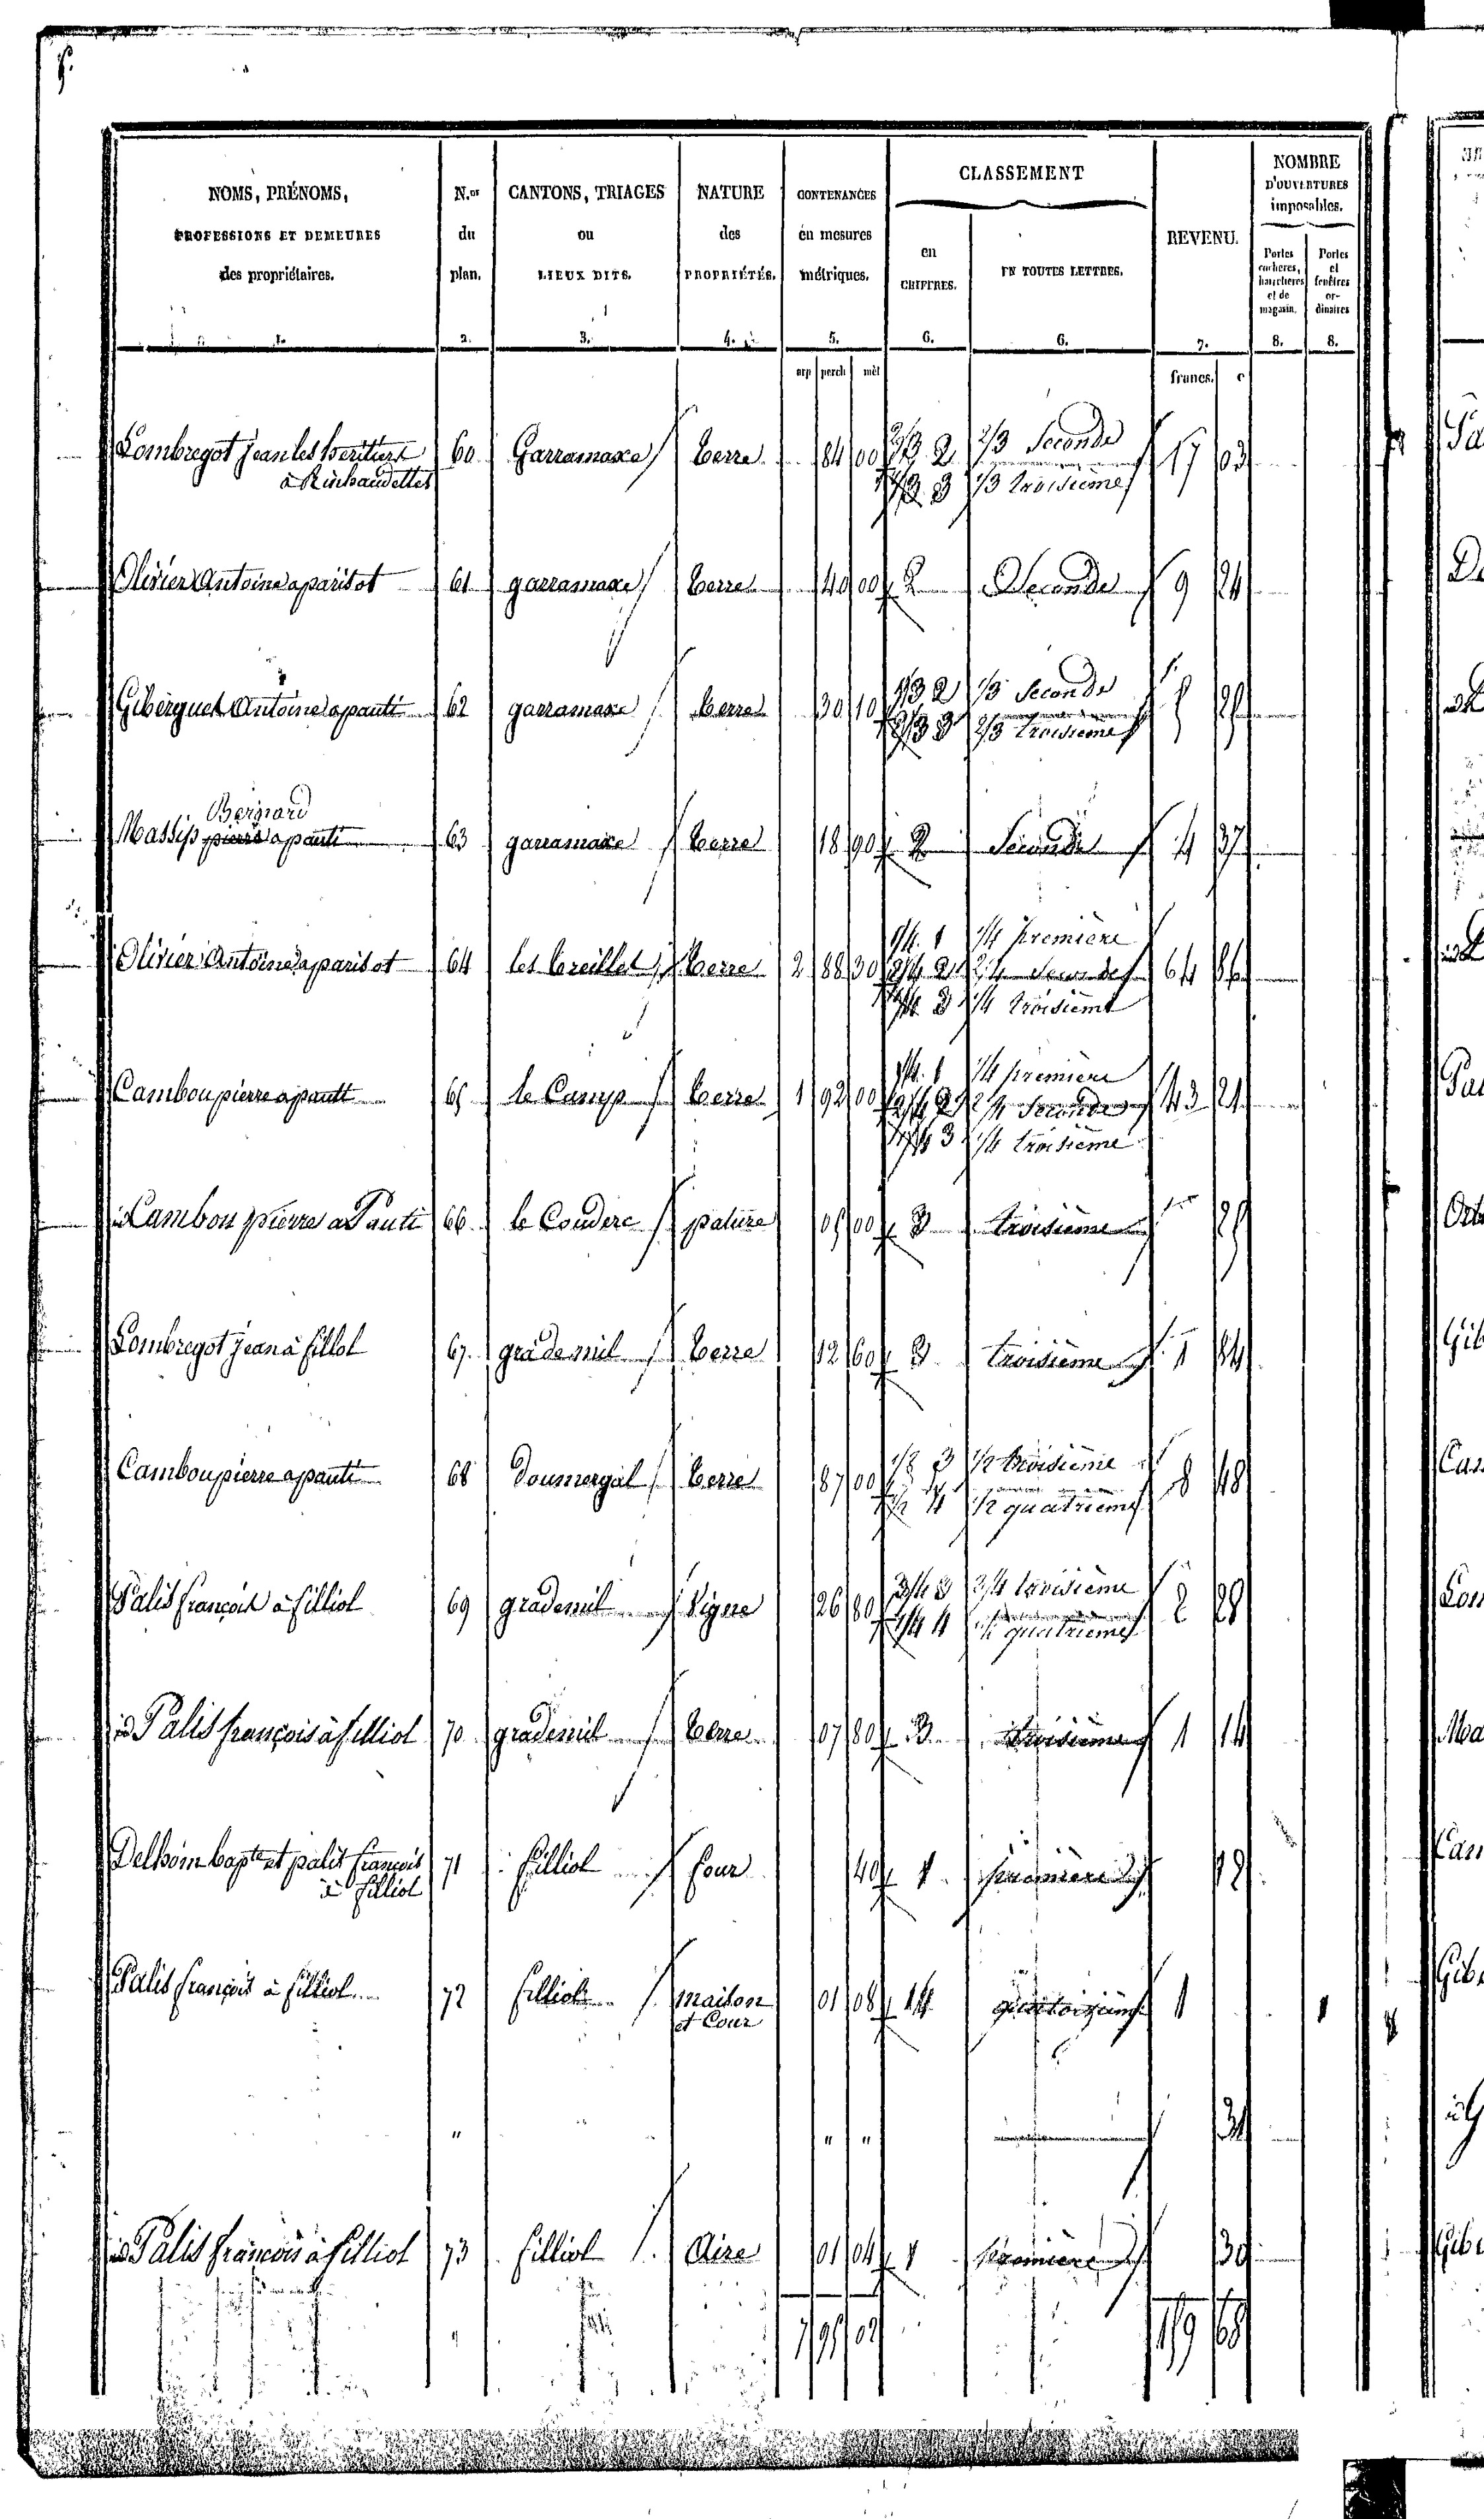 NOMS, PRÉNOMS, PROFESSIONS ET DEMEURES des propriétaires. | N.os du plan. | CANTONS, TRIAGES ou LIEUX DITS. | NATURE des PROPRIÉTÉS. | CONTENANCES en mesures métriques. | CLASSEMENT en CHIFFRES. | EN TOUTES LETTRES. | REVENU. | NOMBRE D'OUVERTURES imposables. Portes cochères, et de magasin. | Portes et fenêtres ordinaires
1. 2. 3. 4. 5. 6. 6. 7. 8. 8.
arp perch mèt francs. c
Lombregot jean les heritiers 60 Garramaxe terre 84 00 2/3 2 2/3 Seconde 17 03
1/3 3 1/3 troisieme
Olivier Antoine a paritot 61 garramaxe terre 40 00 2 Seconde 9 24
Giberguet Antoine a pauti 62 garramaxe terre 30 10 1/3 2 1/3 Seconde
2/3 3 2/3 troisieme
Bernard
Massip pierre a pauti 63 garramaxe terre 18 90 2 Seconde 4 37
Olivier Antoine a paritot 64 les terre 2 88 30 1/4 1 1/4 première 64 86
2/4 2 2/4 Seconde
1/4 3 1/4 troisieme
Cambou pierre a pauti 65 le Camp terre 1 92 00 1/4 1 1/4 premiere 43 21
2/4 2 2/4 Seconde
1/4 3 1/4 troisieme
id Cambou pierre a Pauti 66 le Couderc pature 05 00 3 troisieme
Lombregot jean à fillol 67 grademil terre 12 60 3 troisième 1 84
Cambou pierre a pauti 68 Doumergal terre 87 00 1/2 3 1/2 troisieme 8 48
1/2 4 1/2 quatrieme
Palis françois à filliol 69 grademil Vigne 26 80 3/4 3 3/4 troisieme 2 28
1/4 4 1/4 quatrieme
id Palis françois à filliol 70 grademil terre 07 80 3 troisieme 1 14
Delhom bapte et palis françois 71 filliol four 40 1 première
à filliol
Palis françois à filliol 72 filliol maison 01 08 14 quatorzieme 1 1
et Cour
" " "
id Palis francois à filliol 73 filliol Aire 01 04 1 première 30
119 68